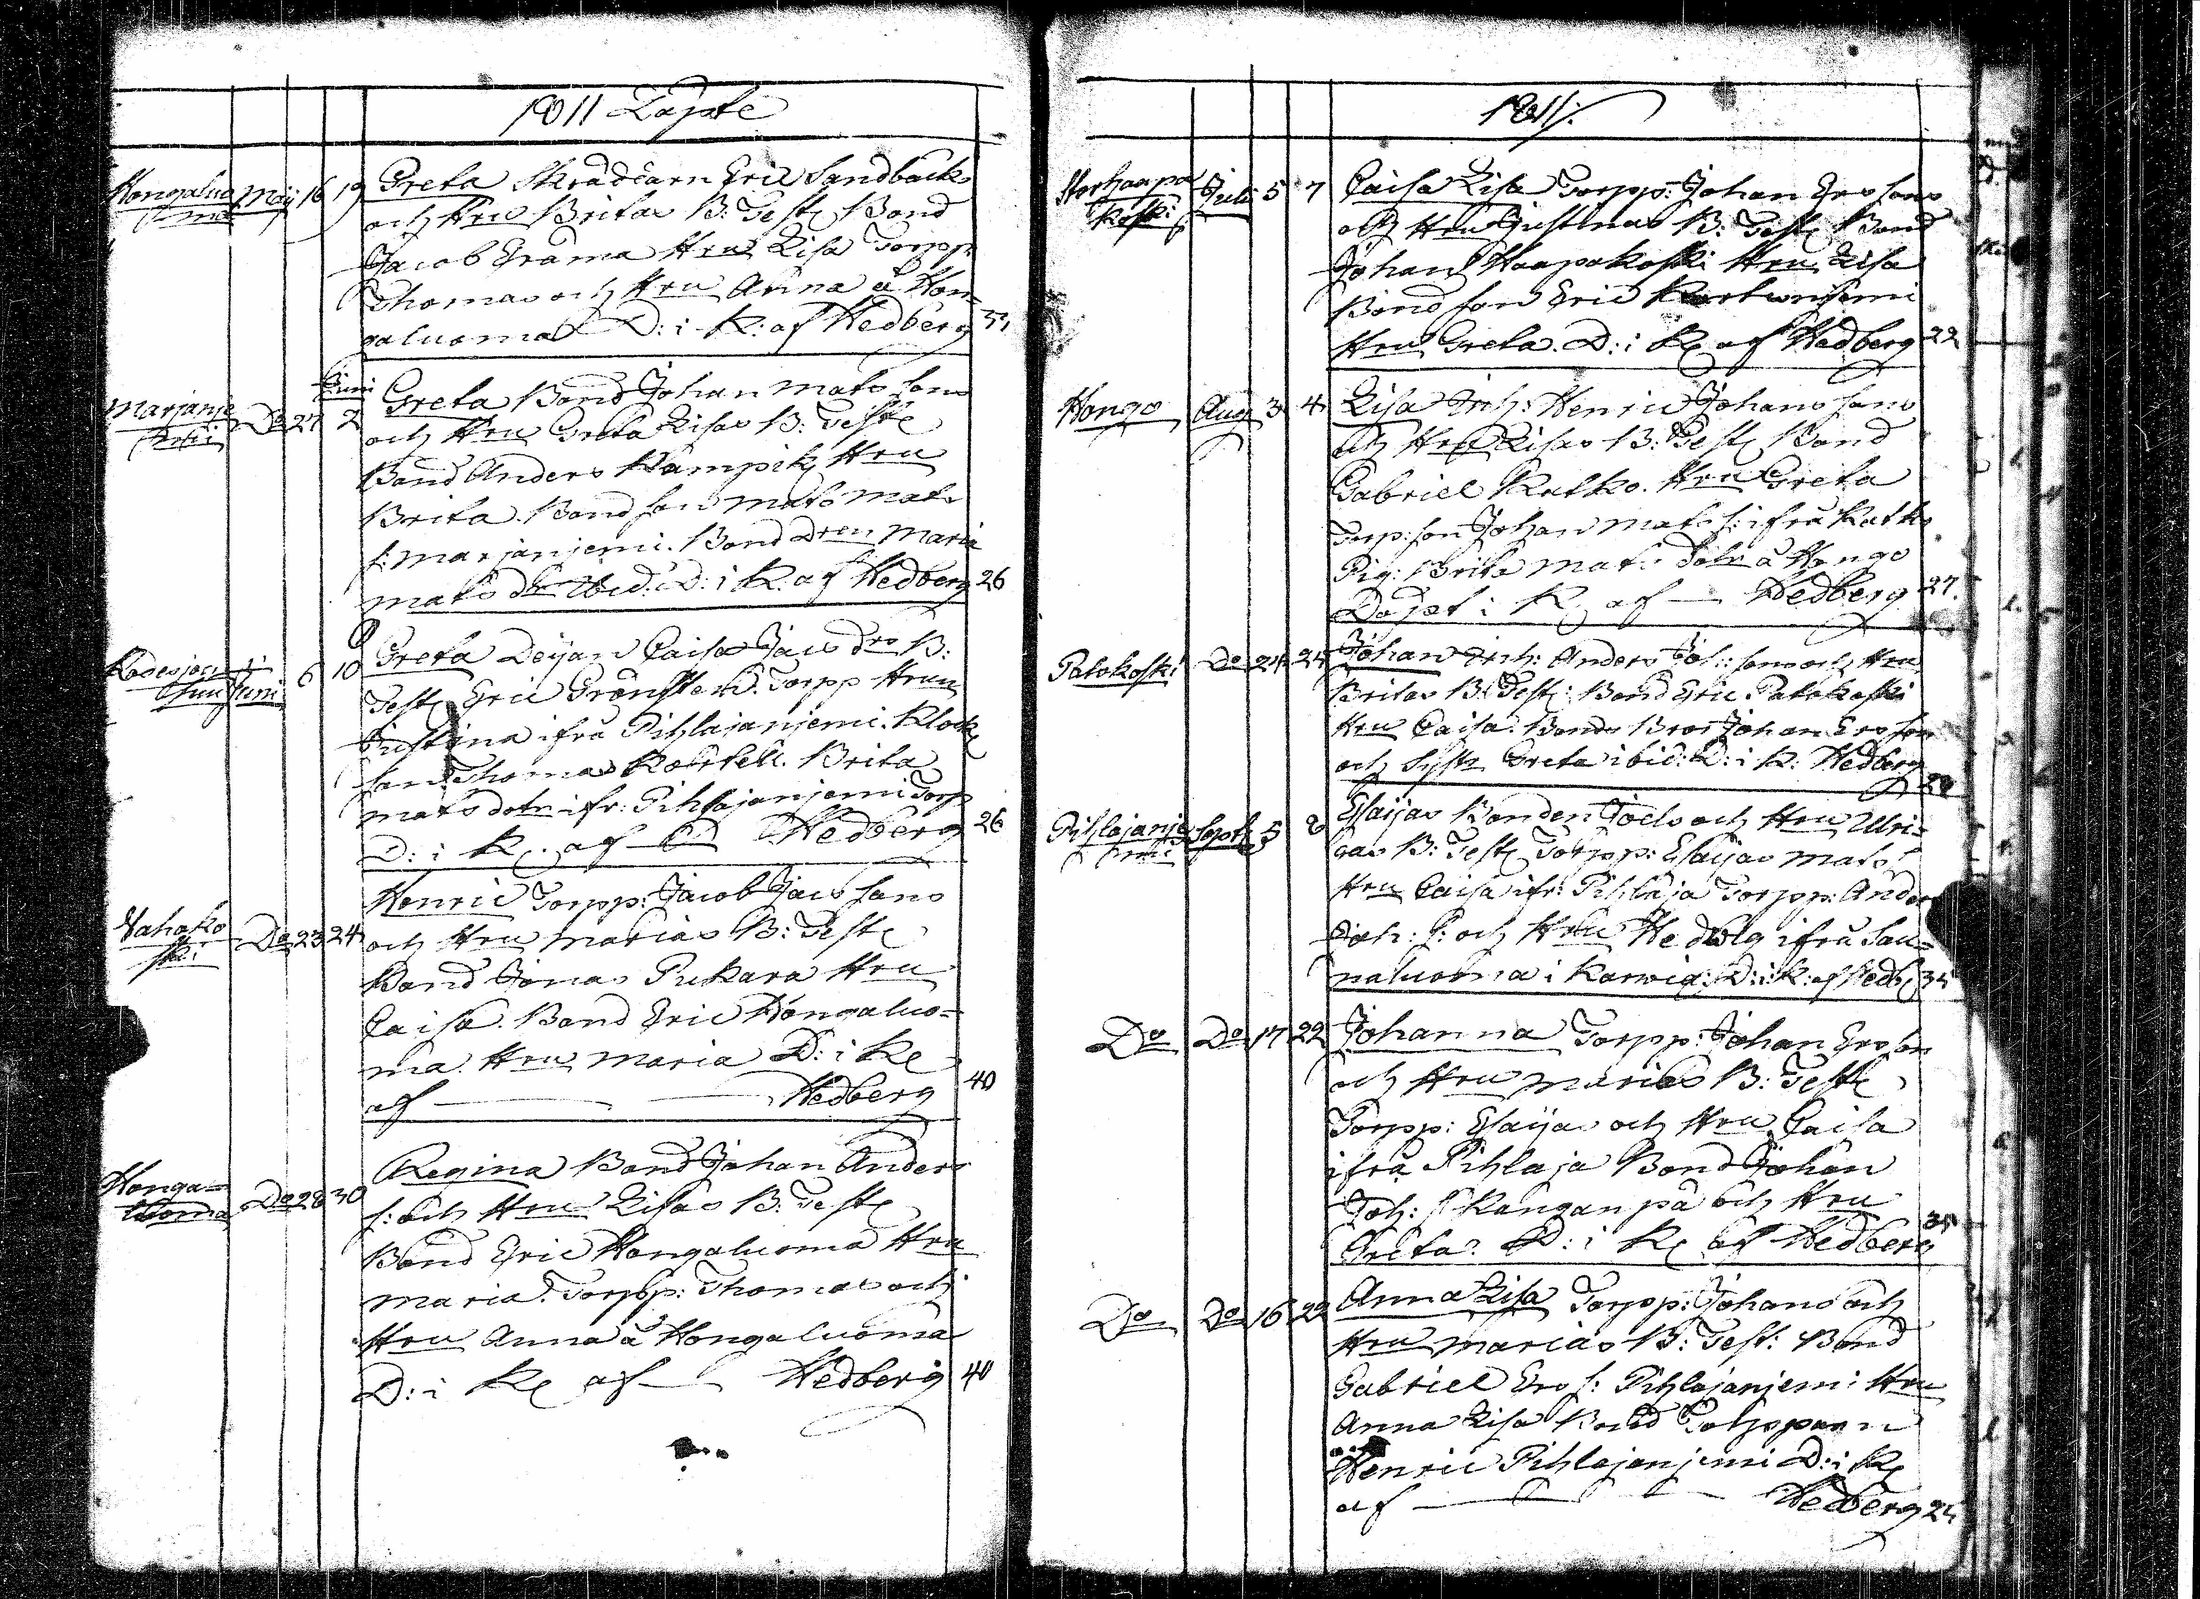 1811 Döpte
Hongaluo May 16 19 Greta Skräddarn Eric Sandbacks
ma och Hru Britas B: Teste Bond
Jacob Gråma Hru Lisa Torpp:
Thomas och Hru Anna å Hon=
galuoma D: i K: af Hedberg
Juni
Marjanje Do 27 2 Greta Bond Johan Mats sons
mi och Hru Greta Lisas B: Teste
Bond Anders Kämpik Hru
Brita. Bond son Mats Mats
s: Marjanjemi. Bond Dren Maria
Mats dr Ibid: D: i K: af Hedberg 26
Juni 6 10 Greta Deijan Caisa Jacs drs B:
Teste Eric Grönstend. Torpp Hrun
Justina ifrå Pihlajanjemi. Klock
son Thomas. Brita
Mats dotr ifr: Pihlajanjemi Torp
D: i K. af Hedberg 26
Vahako Do 23 24 Henric Torpp: Jacob Jacs sons
ski och Hru Marias B: Teste
Bond Jonas Pukara Hru
Caisa. Bond Eric Hongaluo=
ma Hru Maria D: i K
af Hedberg 40
Honga= Do 28 30 Regina Bond Johan Anders
luoma s: och Hru Lisas B: Teste
Bond Eric Hongaluoma Hru
Maria. Torpp: Thomas och
Hru Anna å Hongaluoma
D: i K af Hedberg 40
1811.
Storhaapa Juli 5 7 Caisa Lisa Torpp: Johan Ers sons
koski och Hru Justinas B: Teste Bond
Johan Haapakoski Hru Lisa
Bond son Eric
Hru Greta. D: i K af Hedberg 22
Hongo Aug 3 4 Lisa Inh: Henric Johans sons
och Hru Lisas B: Teste Bond
Gabriel Ratko. Hru Greta
Torp: son Johan Mats s: ifrå Ratko
Pig: Brita Mats dotr å Hongo
Döpt i K af Hedberg 27.
Patokoski Do 24 25 Johan Inh: Anders Joh: sons och Hru
Britas B: Teste: Bond Eric Patokoski
Hru Caisa. Bonds Bror Johan Ers son
och Systr Greta ibid: D: i K: Hedberg
Pihlajanje Septe 5 8 Elaijas Bonden Joels och Hru Ulri=
mi cas B: Teste Torpp: Elaijas Mats
Hru Caisa ifr: Pihlaja Torpp: Anders
Joh: s: och Hru Hedvig ifrå Sau=
naluoma i Karvia: D: i K: af Hedb
Do Do 17 22 Johanna Torpp: Johan Ers son
och Hru Marias B: Teste
Torpp: Elaijas och Hru Caisa
ifrå Pihlaja Bond Johan
Joh: s Kanganpä och Hru
Greta. D: i K af Hedberg
Do Do 16 22 Anna Lisa Torpp: Johans och
Hru Marias B: Test: Bond
Gabriel Ers s: Pihlajanjemi Hru
Anna Lisa Bond Torpparn
Henric Pihlajanjemi D: i K
af Hedberg